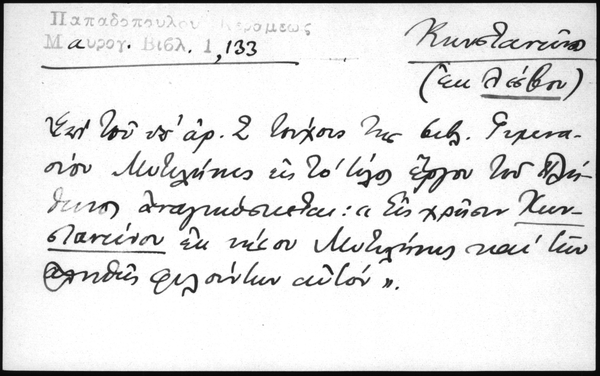 Παπαδοπούλου Κεραμέως
Μαυρογ. Βιβλ. 1, 133
Κωνσταντῖνος
(ἐκ Λέσβου)
Ἐπὶ τοῦ ὑπ' ἀρ. 2 τεύχους τῆς βιβλ. Γυμνα-
σίου Μυτιλήνης εἰς τὸ τέλος ἔργου τοῦ Πλή-
θωνος ἀναγινώσκεται: « Εἰς χρῆσιν Κων-
σταντίνου ἐκ νήσου Μυτιλήνης καὶ τῶν
ἀληθῶς φιλούντων αὐτόν ».